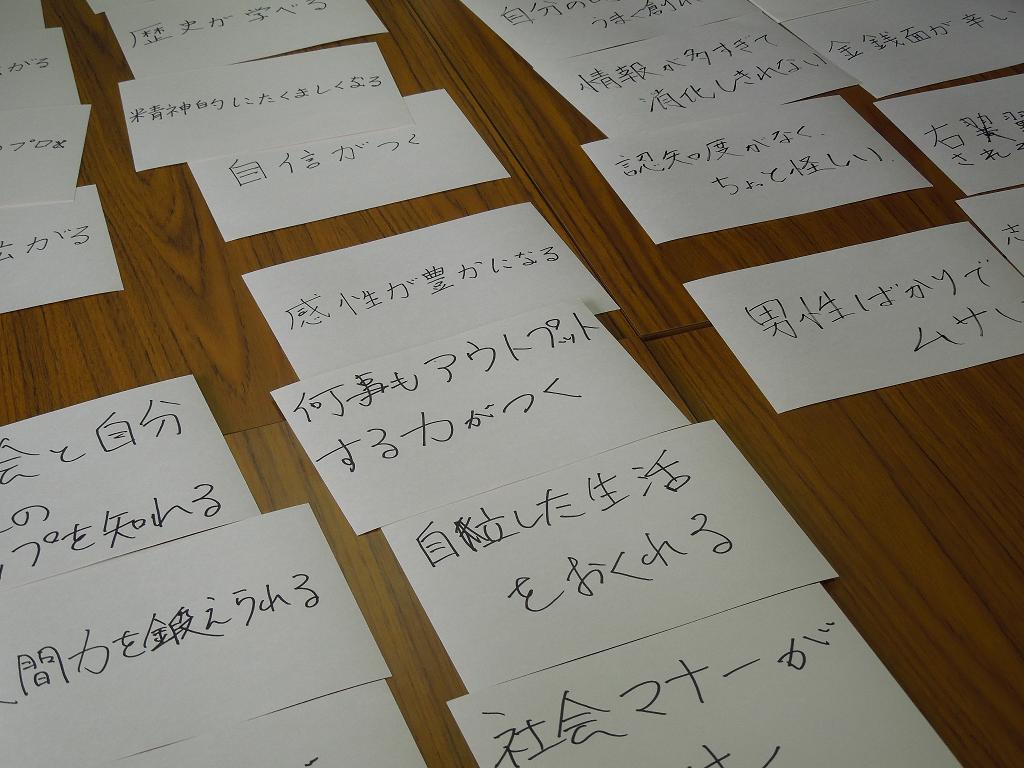 歴史が学べる
精神的にたくましくなる
自信がつく
感性が豊かになる
何事もアウトプット
する力がつく
自粒した生活
をおくれる
社会マナーが
がる
プロを
広がる
会と自分
の
プを知れる
間力を鍛えられる
自分の
うまく創れ
情報が多すぎて
消化しきれない
認知度がなく、
ちょと怪しい。
金銭面が辛い
右翼
される
志
男性ばかりで
ムサい